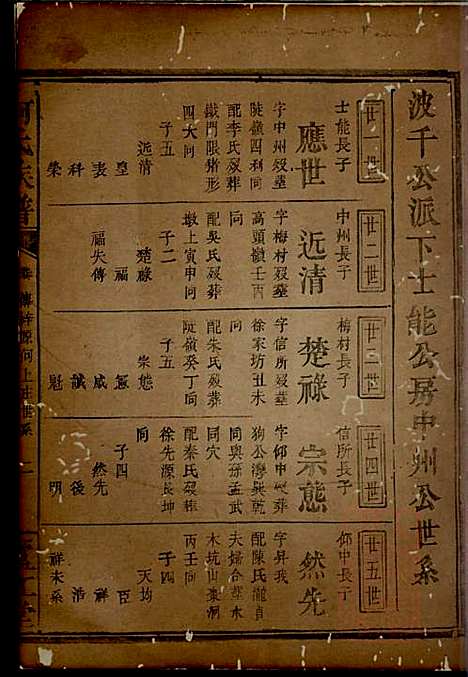 波千公派下士能公房中州公世系
廿一世
士能長子
應世
字中州歿墓
陡嶺四利向
配李氏歿葬
鐵門限豬形
四大向
子五
近清
皇
表
科
榮
廿二世
中州長子
近清
字梅村歿墓
高頭嶺壬丙
向
配吳氏歿葬
墩上寅申向
子二
楚祿
福
福失傳
廿三世
梅村長子
楚祿
字信所歿墓
徐家坊丑未
向
配朱氏歿葬
陡嶺癸丁向
子五
宗態
憲
咸
誠
魁
廿四世
信所長子
宗態
字仰中歿葬
狗公灣巽乾
向與孫孟武
同穴
配秦氏歿葬
徐先源艮坤
向
子四
然先
後
明
廿五世
仰中長子
然先
字昇我
配陳氏瀧貞
夫婦合葬水
木坑山棗洞
丙壬向
子四
天均
臣
祥
浩
祥未系
何氏族譜